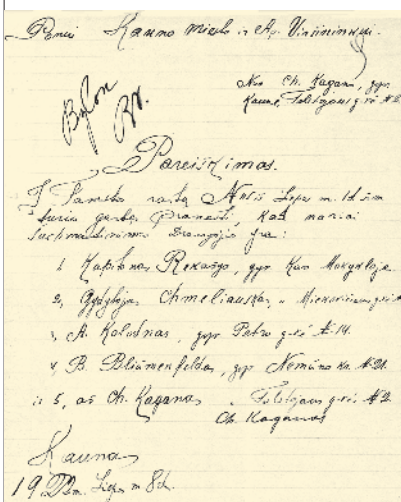 Ponui Kauno miesto ir Ap. Viršininkui.
Nuo Ch. Kagano, gyv.
Kaune, Tolstojaus g-vė № 2
Pareiškimas.
Į Tamstos raštą Liepos m. 1 d. šiuo
turiu garbę pranešti, kad nariai
Draugijos yra:
1. Kapitonas Rekašys, gyv. Karo Mokykloje
2, Gydytojas Chmeliauskas, " Mickevičiaus g-vė
3, A. Kalodnas, gyv. Petro g-vė № 14.
4, B. Bliumenfeldas, gyv. Nemuno Kr. № 21.
ir 5, aš Ch. Kaganas " Tolstojaus g-vė № 2
Ch. Kaganas
Kaunas
19 m. Liep. m 8 d.